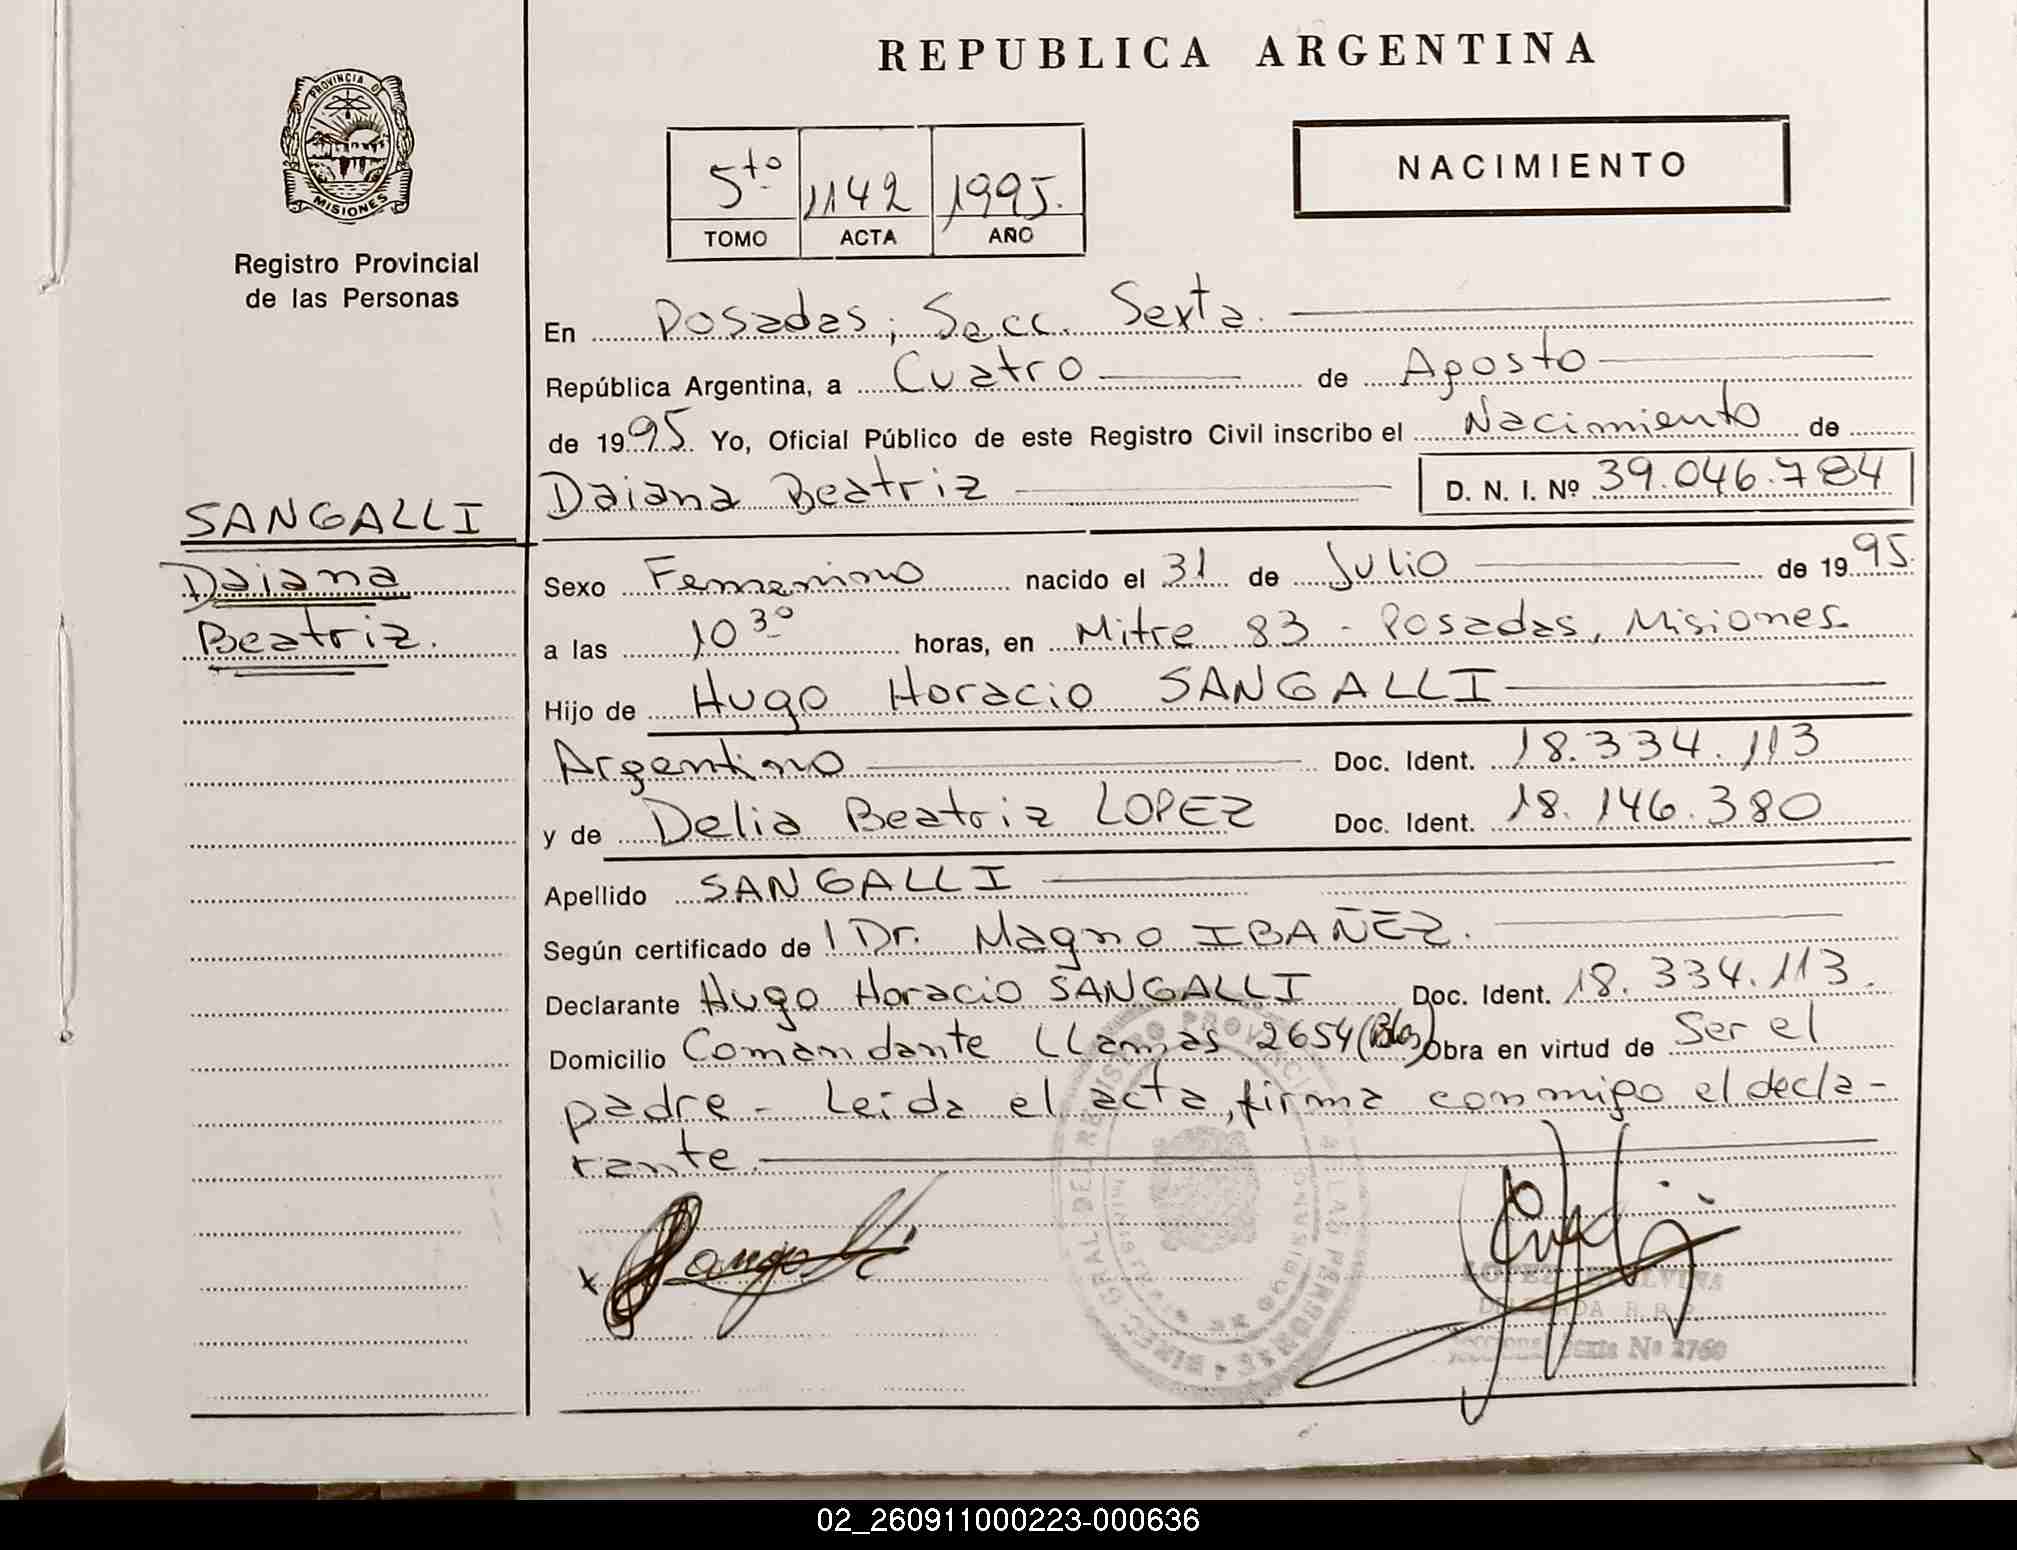 REPUBLICA ARGENTINA
PROVINCIA D
MISIONES
Registro Provincial
de las Personas
5to 1142 1995.
TOMO ACTA AÑO
NACIMIENTO
En Posadas, Secc. Sexta.
República Argentina, a Cuatro de Agosto
de 1995. Yo, Oficial Público de este Registro Civil inscribo el Nacimiento de
Daiana Beatriz D. N. I. Nº 39.046.784
SANGALLI
Daiana
Beatriz.
Sexo Femenino nacido el 31 de Julio de 1995.
a las 10 30 horas, en Mitre 83 - Posadas, Misiones
Hijo de Hugo Horacio SANGALLI
Argentino Doc. Ident. 18.334.113
y de Delia Beatriz LOPEZ Doc. Ident. 18.146.380
Apellido SANGALLI
Según certificado de l Dr. Magno IBAÑEZ.
Declarante Hugo Horacio SANGALLI Doc. Ident. 18.334.113.
Domicilio Comandante LLamas 2654 Obra en virtud de Ser el
padre - Leida el acta, firma conmigo el decla-
rante.
x Sangalli
LOPEZ
Sexta Nº 2760
02_260911000223-000636